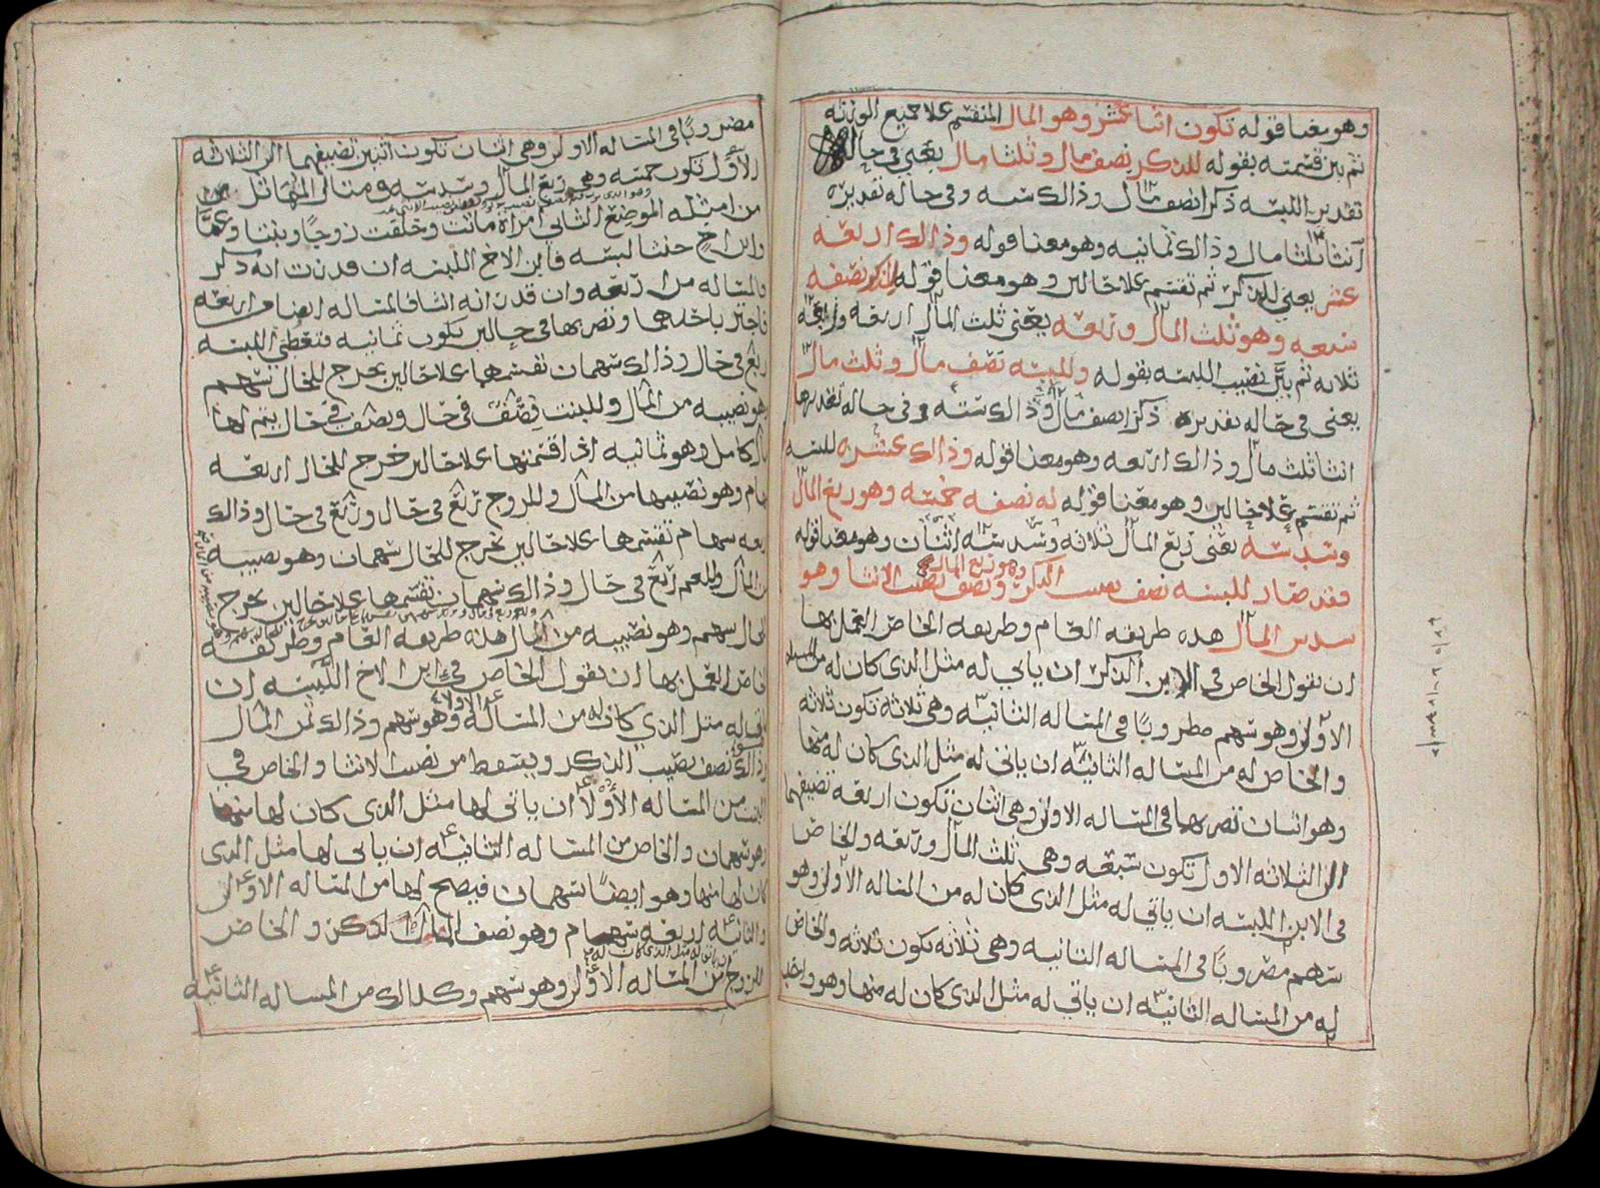 وهو معنا قوله تكون اثنا عشر وهو المال المنقسم علا جميع الورثه
ثم بين قسمته بقوله للذكر نصف مال وثلثا مال يعني في حاله
تقدير اللبسه ذكرا نصف مال وذالك سته وفي حاله تقديره
انثا ثلثا مال وذالك ثمانيه وهو معنا قوله وذالك اربعه
عشر يعني للذكر ثم تقسم علا حالين وهو معنا قوله للذكر نصفه
سبعه وهو ثلث المال وربعه يعني ثلث المال اربعه وربعه
ثلاثه ثم بين نصيب اللبسه بقوله وللبسه نصف مال وثلث مال
يعني في حاله تقديره ذكرا نصف مال وذالك سته وفي حاله تقديرها
انثا ثلث مال وذالك اربعه وهو معنا قوله وذالك عشره للبسه
ثم تقسم علا حالين وهو معنا قوله له نصفه خمسه وهو ربع المال
وسدسه يعني ربع المال ثلاثه وسدسه اثنان وهو معنا قوله
وهو ربع المال
فقد صار للبسه نصف نصيب الذكر ونصف نصيب الانثا وهو
سدس المال هذه طريقه العام وطريقه الخاص العمل بها
ان تقول الخاص في الابن الذكر ان ياتي له مثل الذي كان له من المساله
الاولى وهو سهم مضروبًا في المساله الثانيه وهي ثلاثه تكون ثلاثه
والخاص له من المساله الثانيه ان ياتي له مثل الذي كان له منها
وهو اثنان تضربها في المساله الاولى وهي اثنان تكون اربعه تضيفها
الى الثلاثه الاول تكون سبعه وهي ثلث المال وربعه والخاص
في الابن اللبسه ان ياتي له مثل الذي كان له من المساله الاولى وهو
سهم مضروبًا في المساله الثانيه وهي ثلاثه تكون ثلاثه والخاص
له من المساله الثانيه ان ياتي له مثل الذي كان له منها وهو واحد
مضروبًا في المساله الاولى وهي اثنان تكون اثنين تضيفها الى الثلاثه
الاول تكون خمسه وهي ربع المال وسدسه ومثال المتماثل
من امثله الموضع الثاني امراة ماتت وخلفت زوجًا وبنتا وعمًا
وابن اخ خنثا لبسه فابن الاخ اللبسه ان قدرت انه ذكر
فالمساله من اربعه وان قدر انه انثا فالمساله ايضا من اربعه
فاجتز باحدهما وتضربها في حالين تكون ثمانيه فتعطي اللبسه
ربع في حال وذالك سهمان تقسمها علا حالين يخرج للحال سهم
وهو نصيبه من المال وللبنت نصف في حال ونصف في حال يتم لها
مال كامل وهو ثمانيه اذا اقسمتها علا حالين خرج للحال اربعه
سهام وهو نصيبها من المال وللزوج ربع في حال وربع في حال وذالك
اربعه سهام تقسمها علا حالين يخرج للحال سهمان وهو نصيبه
من المال وللعم ربع في حال وذالك سهمان تقسمها علا حالين يخرج
للحال سهم وهو نصيبه من المال هذه طريقه العام وطريقه
الخاص العمل بها ان تقول الخاص في ابن الاخ اللبسه ان
ياتي له مثل الذي كان له من المساله الاولى وهو سهم وذالك ثمن المال
وذالك نصف نصيب الذكر ويسقط من نصيب الانثا والخاص في
البنت من المساله الأولا ان ياتي لها مثل الذي كان لها منها
وهو سهمان والخاص من المساله الثانيه ان ياتي لها مثل الذي
كان لها منها وهو ايضًا سهمان فيصح لها من المساله الاولى
والثانيه اربعه سهام وهو نصف المال والخاص
ان ياتي له مثل الذي كان له
للزوج من المساله الاولى وهو سهم وكذالك من المساله الثانيه